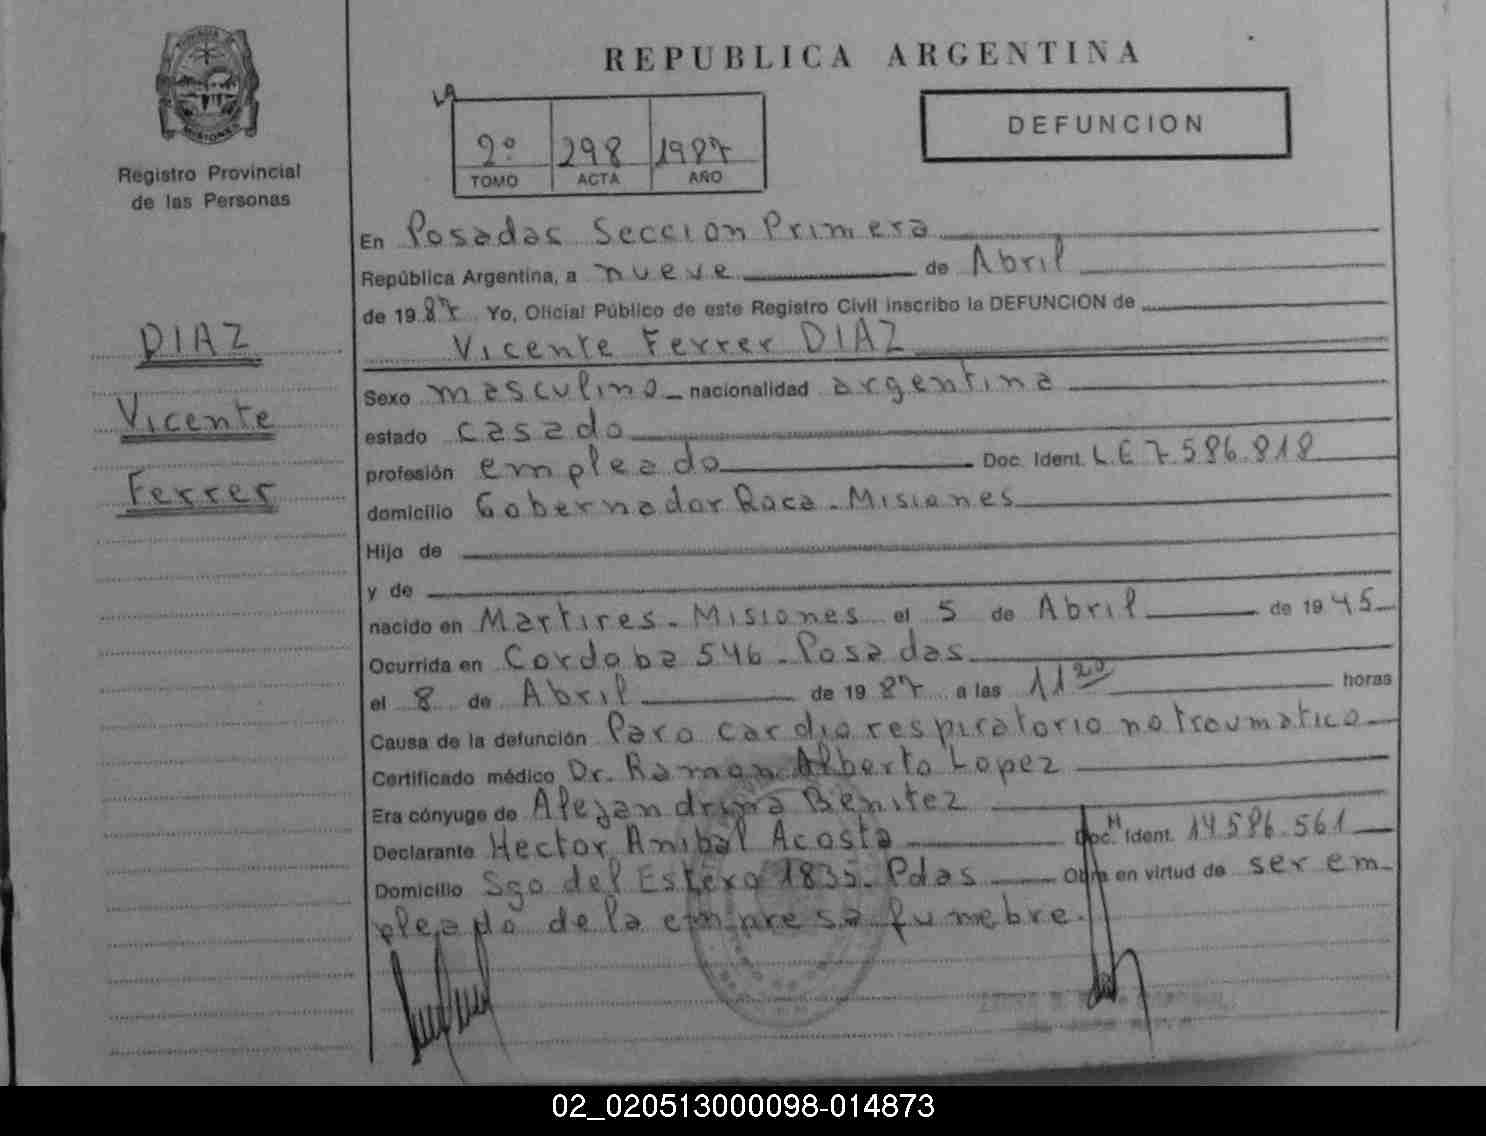 REPUBLICA ARGENTINA
DEFUNCION
2º 298 1987
TOMO ACTA AÑO
MISIONES
Registro Provincial
de las Personas
DIAZ
Vicente
Ferrer
En Posadas Seccion Primera
República Argentina, a nueve de Abril
de 1987 Yo, Oficial Público de este Registro Civil inscribo la DEFUNCION de
Vicente Ferrer DIAZ
Sexo masculino nacionalidad argentina
estado casado
profesión empleado Doc. Ident. L.E 7.586.818
domicilio Gobernador Roca - Misiones
Hijo de
y de
nacido en Martires - Misiones el 5 de Abril de 1945
Ocurrida en Cordoba 546 - Posadas
el 8 de Abril de 1987 a las 11 20 horas
Causa de la defunción Paro cardiorespiratorio no traumatico
Certificado médico Dr. Ramon Alberto Lopez
Era cónyuge de Alejandrina Benitez
Declarante Hector Anibal Acosta Doc. Ident. M 14.586.561
Domicilio Sgo del Estero 1835 - Pdas Obra en virtud de ser em-
pleado de la empresa funebre.
02_020513000098-014873